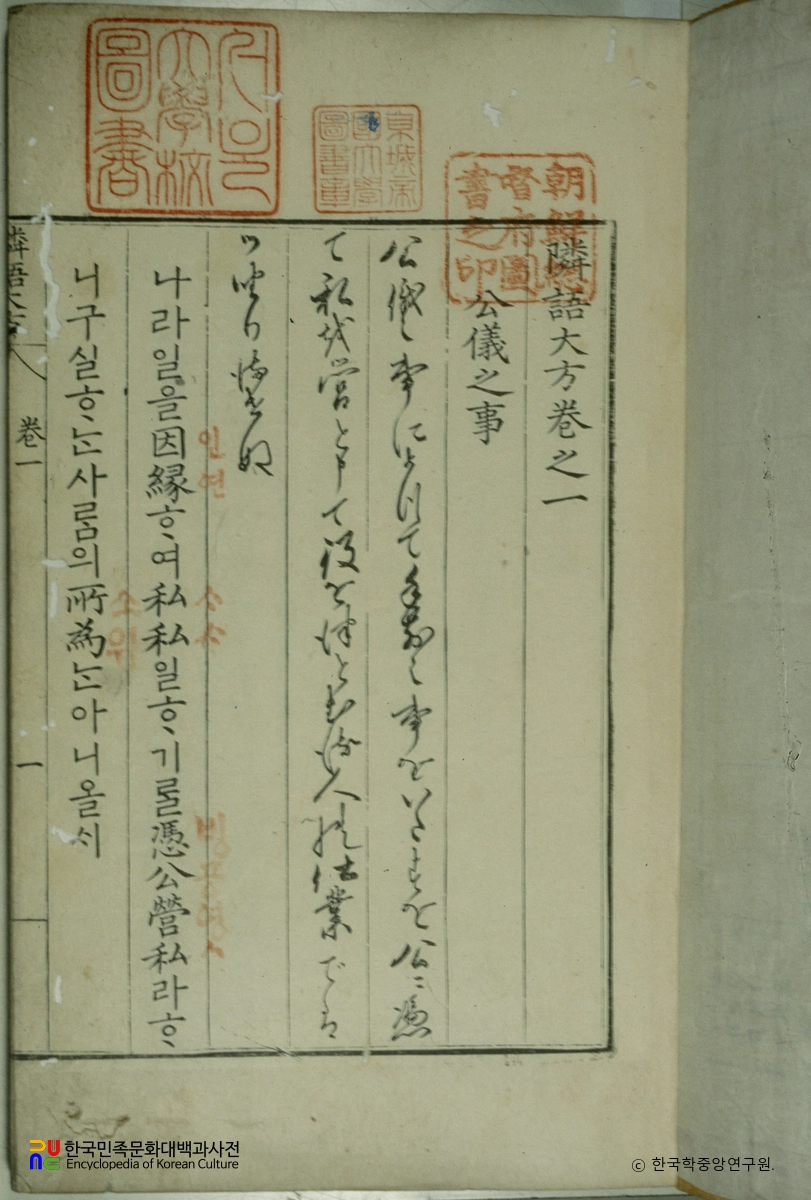 隣語大方卷之一
公儀之事
公儀之事によつて手前之事をいたすを公に憑
て私を営と申て役を
人の仕業では
御ざりませぬ
나라일을因緣ᄒᆞ여私私일ᄒᆞ기ᄅᆞᆯ憑公營私라ᄒᆞ
니구실ᄒᆞᄂᆞᆫ사ᄅᆞᆷ의所爲ᄂᆞᆫ아니올쇠
인연
ᄉᆞᄉᆞ
빙공영ᄉᆞ
소위
隣語大方
卷一
一
朝鮮總督府圖書之印
京城帝國大學圖書章
서울大學校圖書
한국민족문화대백과사전
Encyclopedia of Korean Culture
ⓒ 한국학중앙연구원.